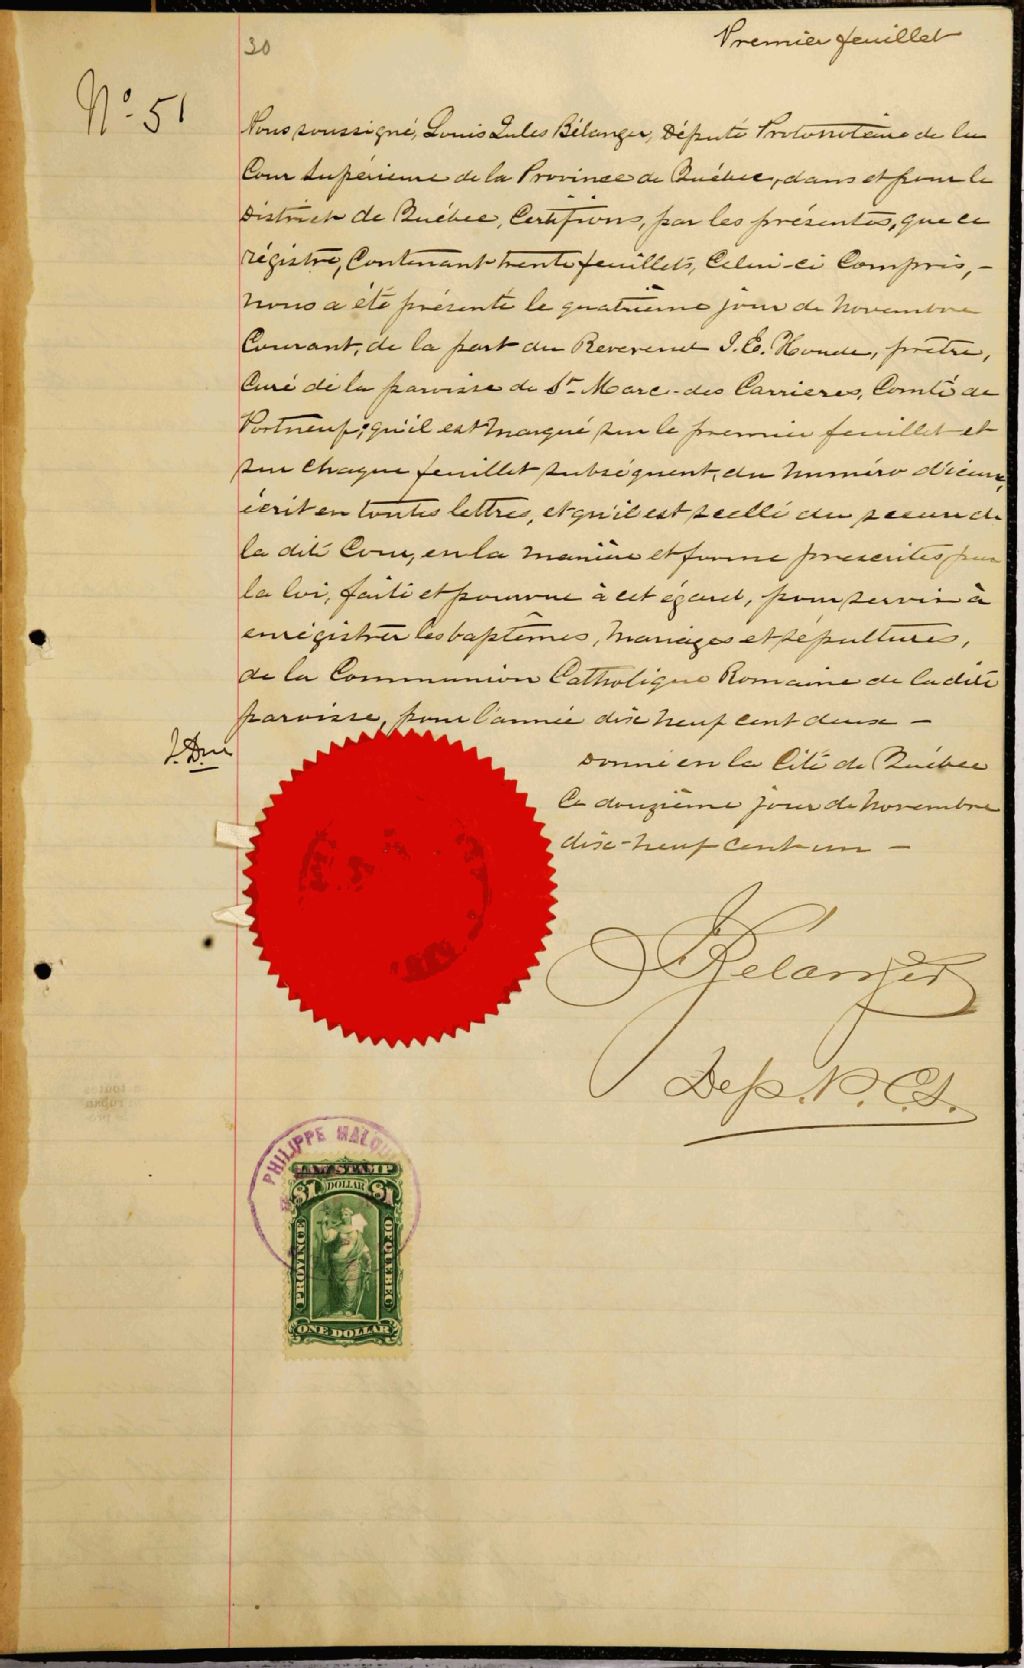 30
Premier feuillet
No 51
Nous soussigné, Louis Jules Bélanger, Député Protonotaire de la
Cour Supérieure de la Province de Québec, dans et pour le
District de Québec, Certifions, par les présentes, que ce
régistre, Contenant trente feuillets, Celui-ci Compris, -
nous a été présenté le quatrième jour de Novembre
Courant, de la part du Reverend J. E. Houde, prêtre,
Curé de la paroisse de St Marc-des Carrieres, Comté de
Portneuf; qu'il est Marqué sur le premier feuillet et
sur chaque feuillet subséquent, du numéro d'iceux,
écrit en toutes lettres, et qu'il est scellé du sceau de
la dite Cour, en la manière et forme prescrites par
la loi, faite et pourvue à cet égard, pour servir à
enrégistrer les baptêmes, Mariages et sépultures,
de la Communion Catholique Romaine de la dite
paroisse, pour l'année dix neuf cent deux -
Donné en la Cité de Québec
Ce douzième jour de Novembre
dix-neuf cent un -
Belanger
Dep. P. C. S.
PHILIPPE
LAW STAMP
$1 DOLLAR $1
PROVINCE
OF QUEBEC
ONE DOLLAR